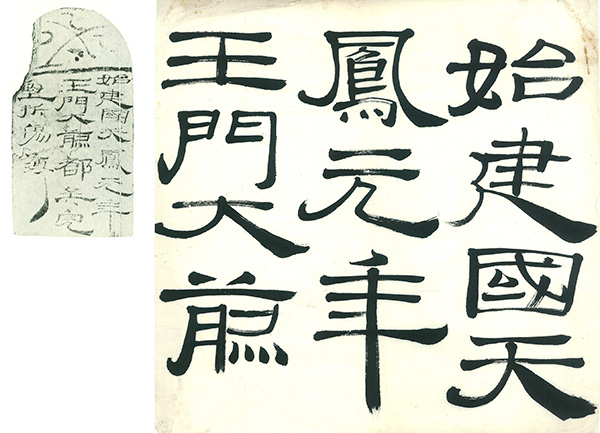 始建國天鳳元年
玉門大煎都兵完
堅折傷簿
始建國天
鳳元年
玉門大煎